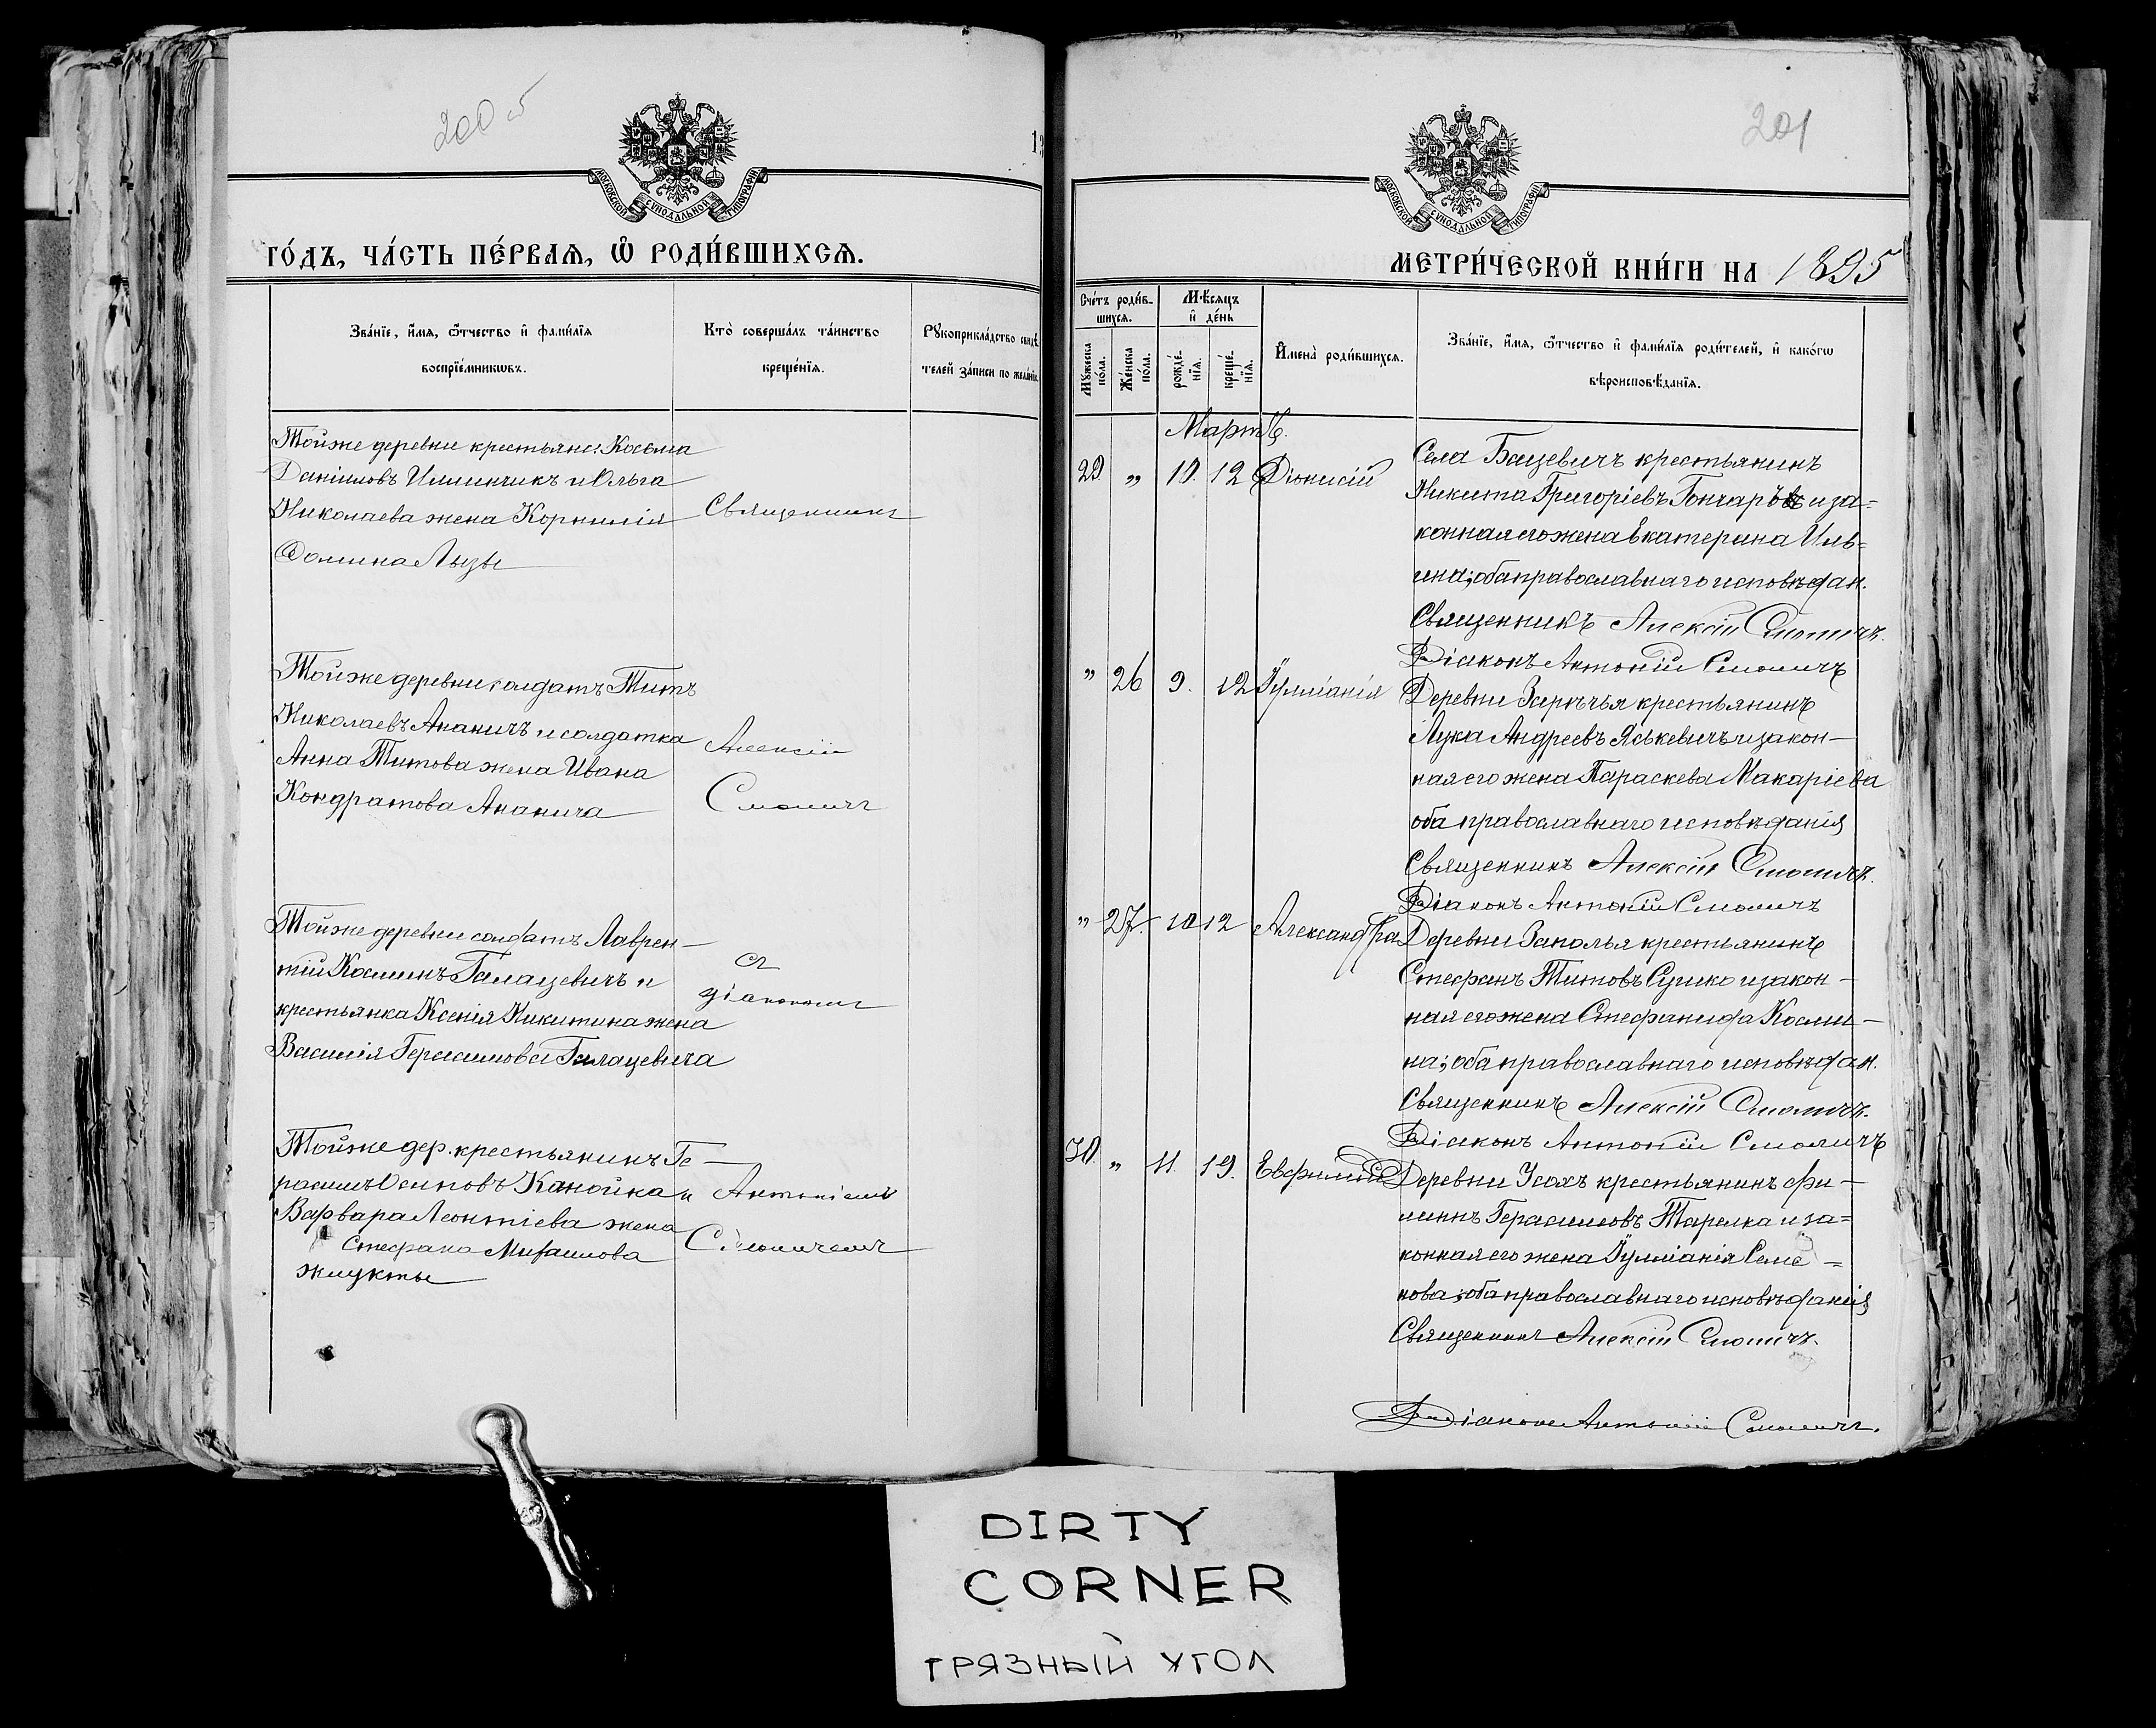 200 об
МОСКОВСКОЙ СѴНОДАЛЬНОЙ ТИПОГРАФІИ
го́дъ, ча́сть пе́рваѧ, ѽ роди́вшихсѧ.
Зва́нїе, и҆́мѧ, ѻ҆́тчество и҆ фами́лїѧ
воспрїе́мникѡвъ.
Кто̀ соверша́лъ та́инство
креще́нїѧ.
Рꙋкоприкла́дство свидѣ́
телей за́писи по жела́нїю
Тойже деревни крестьяне: Косьма
Даніиловъ Илинчикъ и Ольга
Николаева жена Корнилія
Фомина Лызы
Священникъ
Тойже деревни солдатъ Титъ
Николаевъ Ананичъ и солдатка
Анна Титова жена Ивана
Кондратова Ананича
Алексій
Смоличъ
Тойже деревни солдатъ Лаврен-
тій Косминъ Галацевичъ и
крестьянка Ксенія Никитина жена
Василія Герасимова Галацевича
съ
діакономъ
Тойже дер. крестьянинъ Ге-
расимъ Осиповъ Канойка и
Варвара Леонтіева жена
Стефана Михаилова
Жлукты
Антоніемъ
Смоличемъ
201
МОСКОВСКОЙ СѴНОДАЛЬНОЙ ТИПОГРАФІИ
метри́ческой кни́ги на 1895
Сче́тъ роди́в-
шихсѧ.
Мꙋ́жеска по́ла.
Же́нска по́ла.
Мѣ́сѧцъ
и҆ де́нь
рожде́нїѧ.
креще́нїѧ.
И҆мена̀ роди́вшихсѧ.
Зва́нїе, и҆́мѧ, ѻ҆́тчество и҆ фами́лїѧ роди́телей, и҆ како́гѡ
вѣроисповѣ́данїѧ.
Мартъ.
20. „ 10. 12 Діонисій
Села Бацевичъ крестьянинъ
Никита Григоріевъ Гончаровъ и за=
конная его жена Екатерина Иль=
ина; оба православнаго исповѣдан.
Священникъ Алексій Смоличъ.
Діаконъ Антоній Смоличъ
„ 26 9. 12 Іуліанія
Деревни Зарѣчья крестьянинъ
Лука Андреевъ Яськевичъ и закон-
ная его жена Параскева Макаріева
оба православнаго исповѣданія
Священникъ Алексій Смоличъ.
Діаконъ Антоній Смоличъ
„ 27. 10 12 Александра
Деревни Заполья крестьянинъ
Стефанъ Титовъ Сушко и закон-
ная его жена Стефанида Косми-
на; оба православнаго исповѣдан.
Священникъ Алексій Смоличъ.
Діаконъ Антоній Смоличъ
30. „ 11. 19. Евфимій
Деревни Усохъ крестьянинъ Фи-
липъ Герасимовъ Тарелка и за=
конная его жена Іуліанія Семе=
нова; оба православнаго исповѣданія
Священникъ Алексій Смоличъ.
Діаконъ Антоній Смоличъ.
DIRTY
CORNER
ГРЯЗНЫЙ УГОЛ